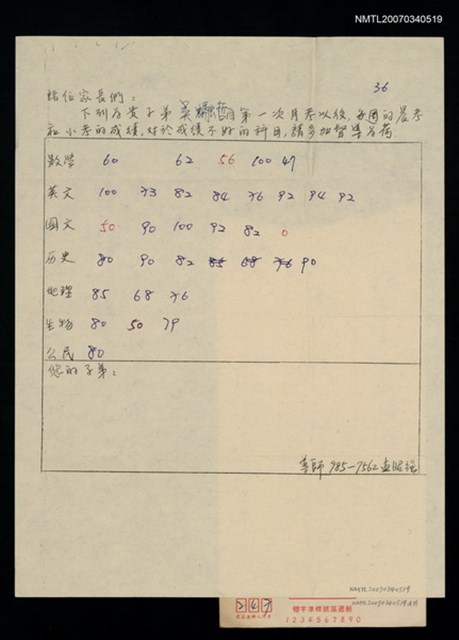 NMTL20070340519
36
諸位家長們：
下列為貴子弟 第一次月考以後，每週的晨考
和小考的成績，對於成績不好的科目，請多加督導為荷
數學 60 62 56 100 47
英文 100 73 82 84 76 92 94 92
國文 50 90 100 92 82 0
历史 80 90 82 85 68 76 90
地理 85 68 76
生物 80 50 79
公民 80
您的子弟：
李師 985-7562 盧昭強
NMTL20070340519
NMTL20070340519
247
1234567890